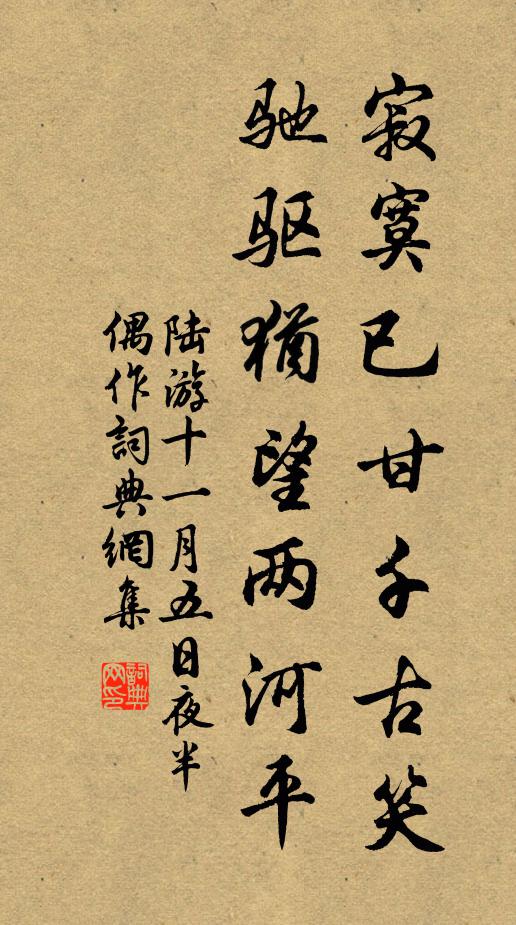 寂寞已甘千古笑
驰驱猶望两河平
陆游十一月五日夜半
偶作詞典網集
詞典网印